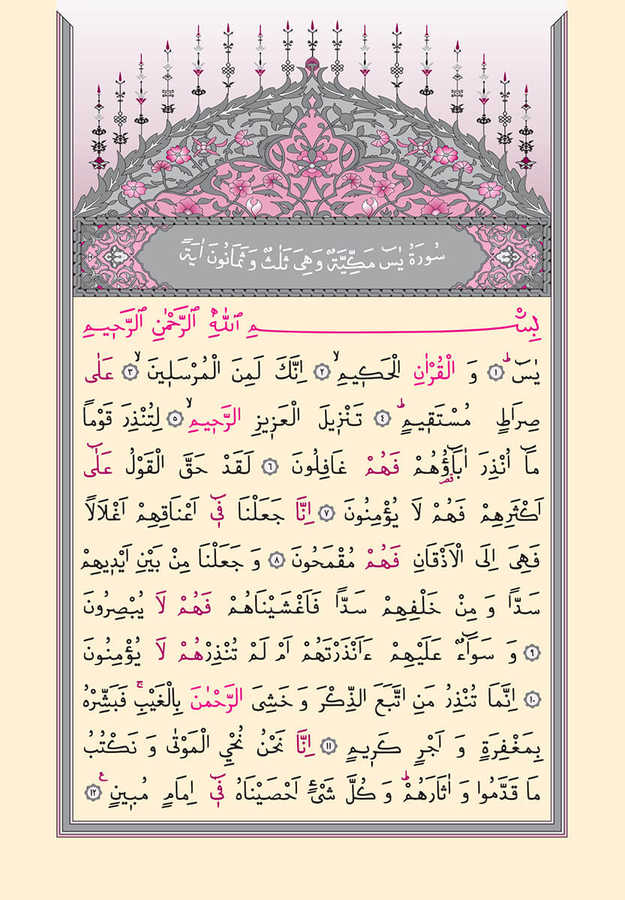 سُورَةُ يٰسٓ مَكِّيَّةٌ وَهِىَ ثَلٰثٌ وَثَمَانُونَ اٰيَةً
بِسْمِ اللّٰهِ الرَّحْمٰنِ الرَّحٖيمِ
يٰسٓ ۚ ﴿١﴾ وَ الْقُرْاٰنِ الْحَكٖيمِ ۙ ﴿٢﴾ اِنَّكَ لَمِنَ الْمُرْسَلٖينَ ۙ ﴿٣﴾ عَلٰى
صِرَاطٍ مُسْتَقٖيمٍ ۜ ﴿٤﴾ تَنْزٖيلَ الْعَزٖيزِ الرَّحٖيمِ ۙ ﴿٥﴾ لِتُنْذِرَ قَوْمًا
مَٓا اُنْذِرَ اٰبَٓاؤُ۬هُمْ فَهُمْ غَافِلُونَ ﴿٦﴾ لَقَدْ حَقَّ الْقَوْلُ عَلٰٓى
اَكْثَرِهِمْ فَهُمْ لَا يُؤْمِنُونَ ﴿٧﴾ اِنَّا جَعَلْنَا فٖٓى اَعْنَاقِهِمْ اَغْلَالًا
فَهِىَ اِلَى الْاَذْقَانِ فَهُمْ مُقْمَحُونَ ﴿٨﴾ وَ جَعَلْنَا مِنْ بَيْنِ اَيْدٖيهِمْ
سَدًّا وَ مِنْ خَلْفِهِمْ سَدًّا فَاَغْشَيْنَاهُمْ فَهُمْ لَا يُبْصِرُونَ
﴿٩﴾ وَ سَوَٓاءٌ عَلَيْهِمْ ءَاَنْذَرْتَهُمْ اَمْ لَمْ تُنْذِرْهُمْ لَا يُؤْمِنُونَ
﴿١٠﴾ اِنَّمَا تُنْذِرُ مَنِ اتَّبَعَ الذِّكْرَ وَ خَشِىَ الرَّحْمٰنَ بِالْغَيْبِ ۚ فَبَشِّرْهُ
بِمَغْفِرَةٍ وَ اَجْرٍ كَرٖيمٍ ﴿١١﴾ اِنَّا نَحْنُ نُحْيِ الْمَوْتٰى وَ نَكْتُبُ
مَا قَدَّمُوا وَ اٰثَارَهُمْ ۜ وَ كُلَّ شَىْءٍ اَحْصَيْنَاهُ فٖٓى اِمَامٍ مُبٖينٍ ۟ ﴿١٢﴾